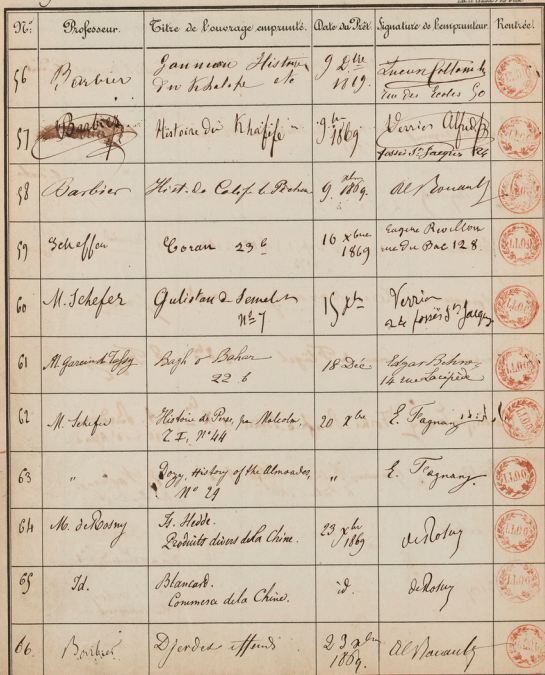 Nos Professeur. Titre de l'ouvrage emprunté. Date du Prêt. Signature de l'emprunteur. Rentrée.
56 Barbier Histoire 9 1869.
rue des Ecoles 50
57 Barbier Histoire des Khalife 9 1869 Verrier Alfred
fossés St Jacques 24
58 Barbier Hist. de Calife 9 Xbre 1869. Al Rouault
59 Scheffer Coran 23 b 16 Xbre 1869 Eugène Revillon
rue du Bac 128.
60 M. Schefer Gulistan de Semelet
No 7 15 Xbre Verrier
24 fossés St Jacques
61 M. Garcin de Tassy Bagh o Bahar
22 b 18 Déc Edgar
14 rue Lacépède
62 M. Schefer Histoire de Perse, par Malcolm,
T. I, No 44 20 Xbre E. Fagnan
63 " Dozy, History of the Almoades,
No 29 " E. Fagnan
64 M. de Rosny H. Hedde.
Produits divers de la Chine. 23 Xbre 1869 de Rosny
65 Id. Blancard.
Commerce de la Chine. id. de Rosny
66 Barbier Djerdes effendi 23 Xbre 1869. Al Rouault